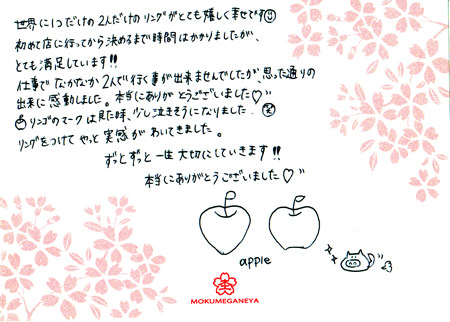 世界に1つだけの2人だけのリングがとても嬉しく幸せです
初めて店に行ってから決めるまで時間はかかりましたが、
とても満足しています!!
仕事でなかなか2人で行く事が出来ませんでしたが、思った通りの
出来に感動しました。本当にありがとうございました♡"
リンゴのマークは見た時、少し泣きそうになりました。
リングをつけてやっと実感がわいてきました。
ずっとずっと一生大切にしていきます!!
本当にありがとうございました♡"
apple
MOKUMEGANEYA